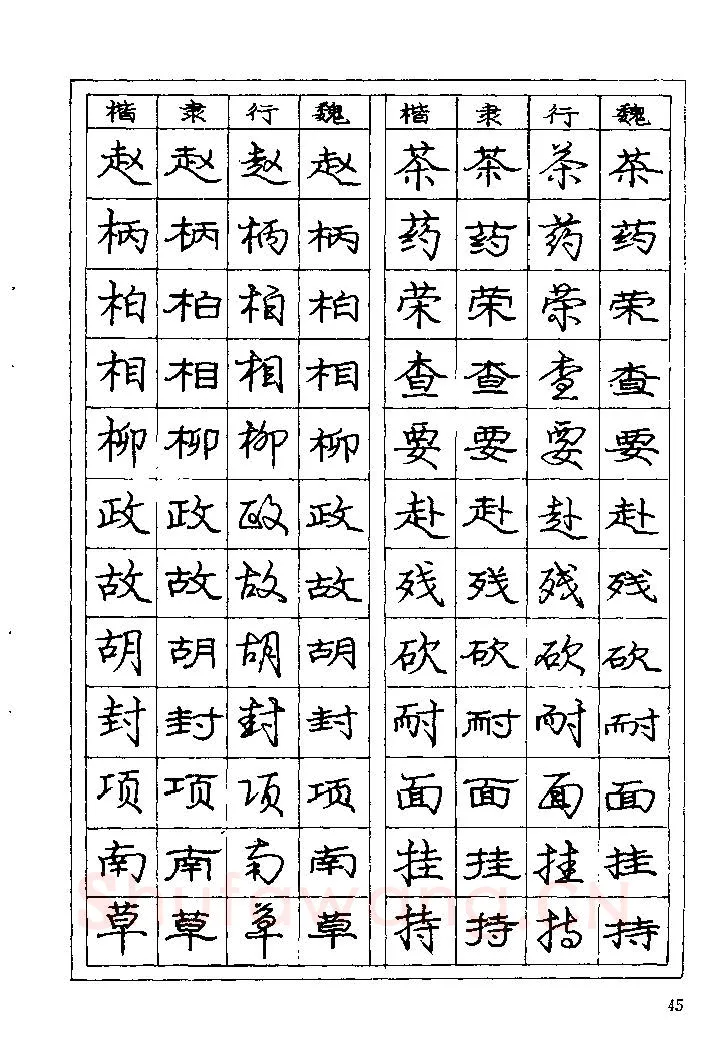 楷 隶 行 魏 楷 隶 行 魏
赵 赵 赵 赵 茶 茶 茶 茶
柄 柄 柄 柄 药 药 药 药
柏 柏 柏 柏 荣 荣 荣 荣
相 相 相 相 查 查 查 查
柳 柳 柳 柳 要 要 要 要
政 政 政 政 赴 赴 赴 赴
故 故 故 故 残 残 残 残
胡 胡 胡 胡 砍 砍 砍 砍
封 封 封 封 耐 耐 耐 耐
项 项 项 项 面 面 面 面
南 南 南 南 挂 挂 挂 挂
草 草 草 草 持 持 持 持
Shufawang.CN
45